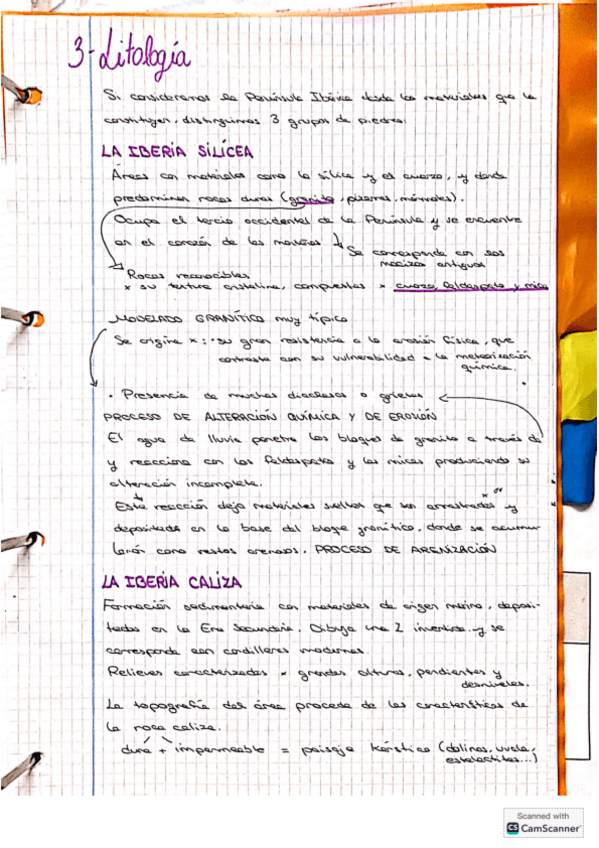 3-Litología
Si consideramos la Península Ibérica desde los materiales que la
constituyen, distinguimos 3 grupos de piedra:
LA IBERIA SILÍCEA
Áreas con materiales como la sílice y el cuarzo, y donde
predominan rocas duras (granito, pizarras, mármoles).
Ocupa el tercio occidental de la Península y se encuentra
en el corazón de las montañas
Se corresponde con los
macizos antiguos
Rocas reconocibles
x su textura cristalina, compuestas x cuarzo, feldespato y mica
MODELADO GRANÍTICO muy típico
Se origina x: · su gran resistencia a la erosión física, que
contrasta con su vulnerabilidad a la meteorización
química.
· Presencia de muchas diaclasas o grietas
PROCESO DE ALTERACIÓN QUÍMICA Y DE EROSIÓN
El agua de lluvia penetra los bloques de granito a través de
y reacciona con los feldespatos y las micas produciendo su
alteración incompleta.
Esta reacción deja materiales sueltos que son arrastrados y
depositados en la base del bloque granítico, donde se acumu-
larán como restos arenosos. PROCESO DE ARENIZACIÓN
LA IBERIA CALIZA
Formación sedimentaria con materiales de origen marino, deposi-
tados en la Era Secundaria. Dibuja una Z invertida y se
corresponde con cordilleras modernas.
Relieves caracterizados x grandes alturas, pendientes y
desniveles.
La topografía del área procede de las características de
la roca caliza.
dura + impermeable = paisaje kárstico (dolinas, uvala,
estalactitas...)
Scanned with
CS CamScanner